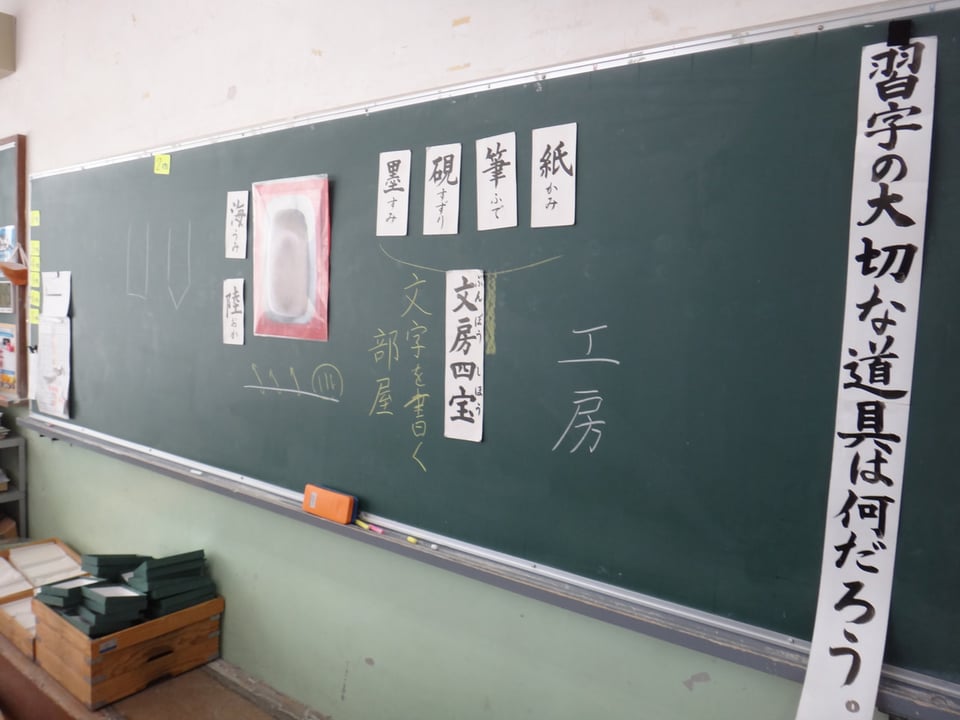 習字の大切な道具は何だろう。
紙 かみ
筆 ふで
硯 すずり
墨 すみ
文房四宝
ぶんぼうしほう
工房
文字を書く
部屋
海 うみ
陸 おか